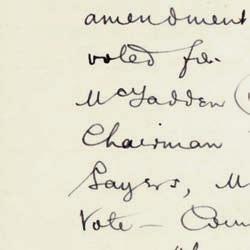 amendment
voted for.
McFadden (
Chairman
Sayers, M
Vote — Com